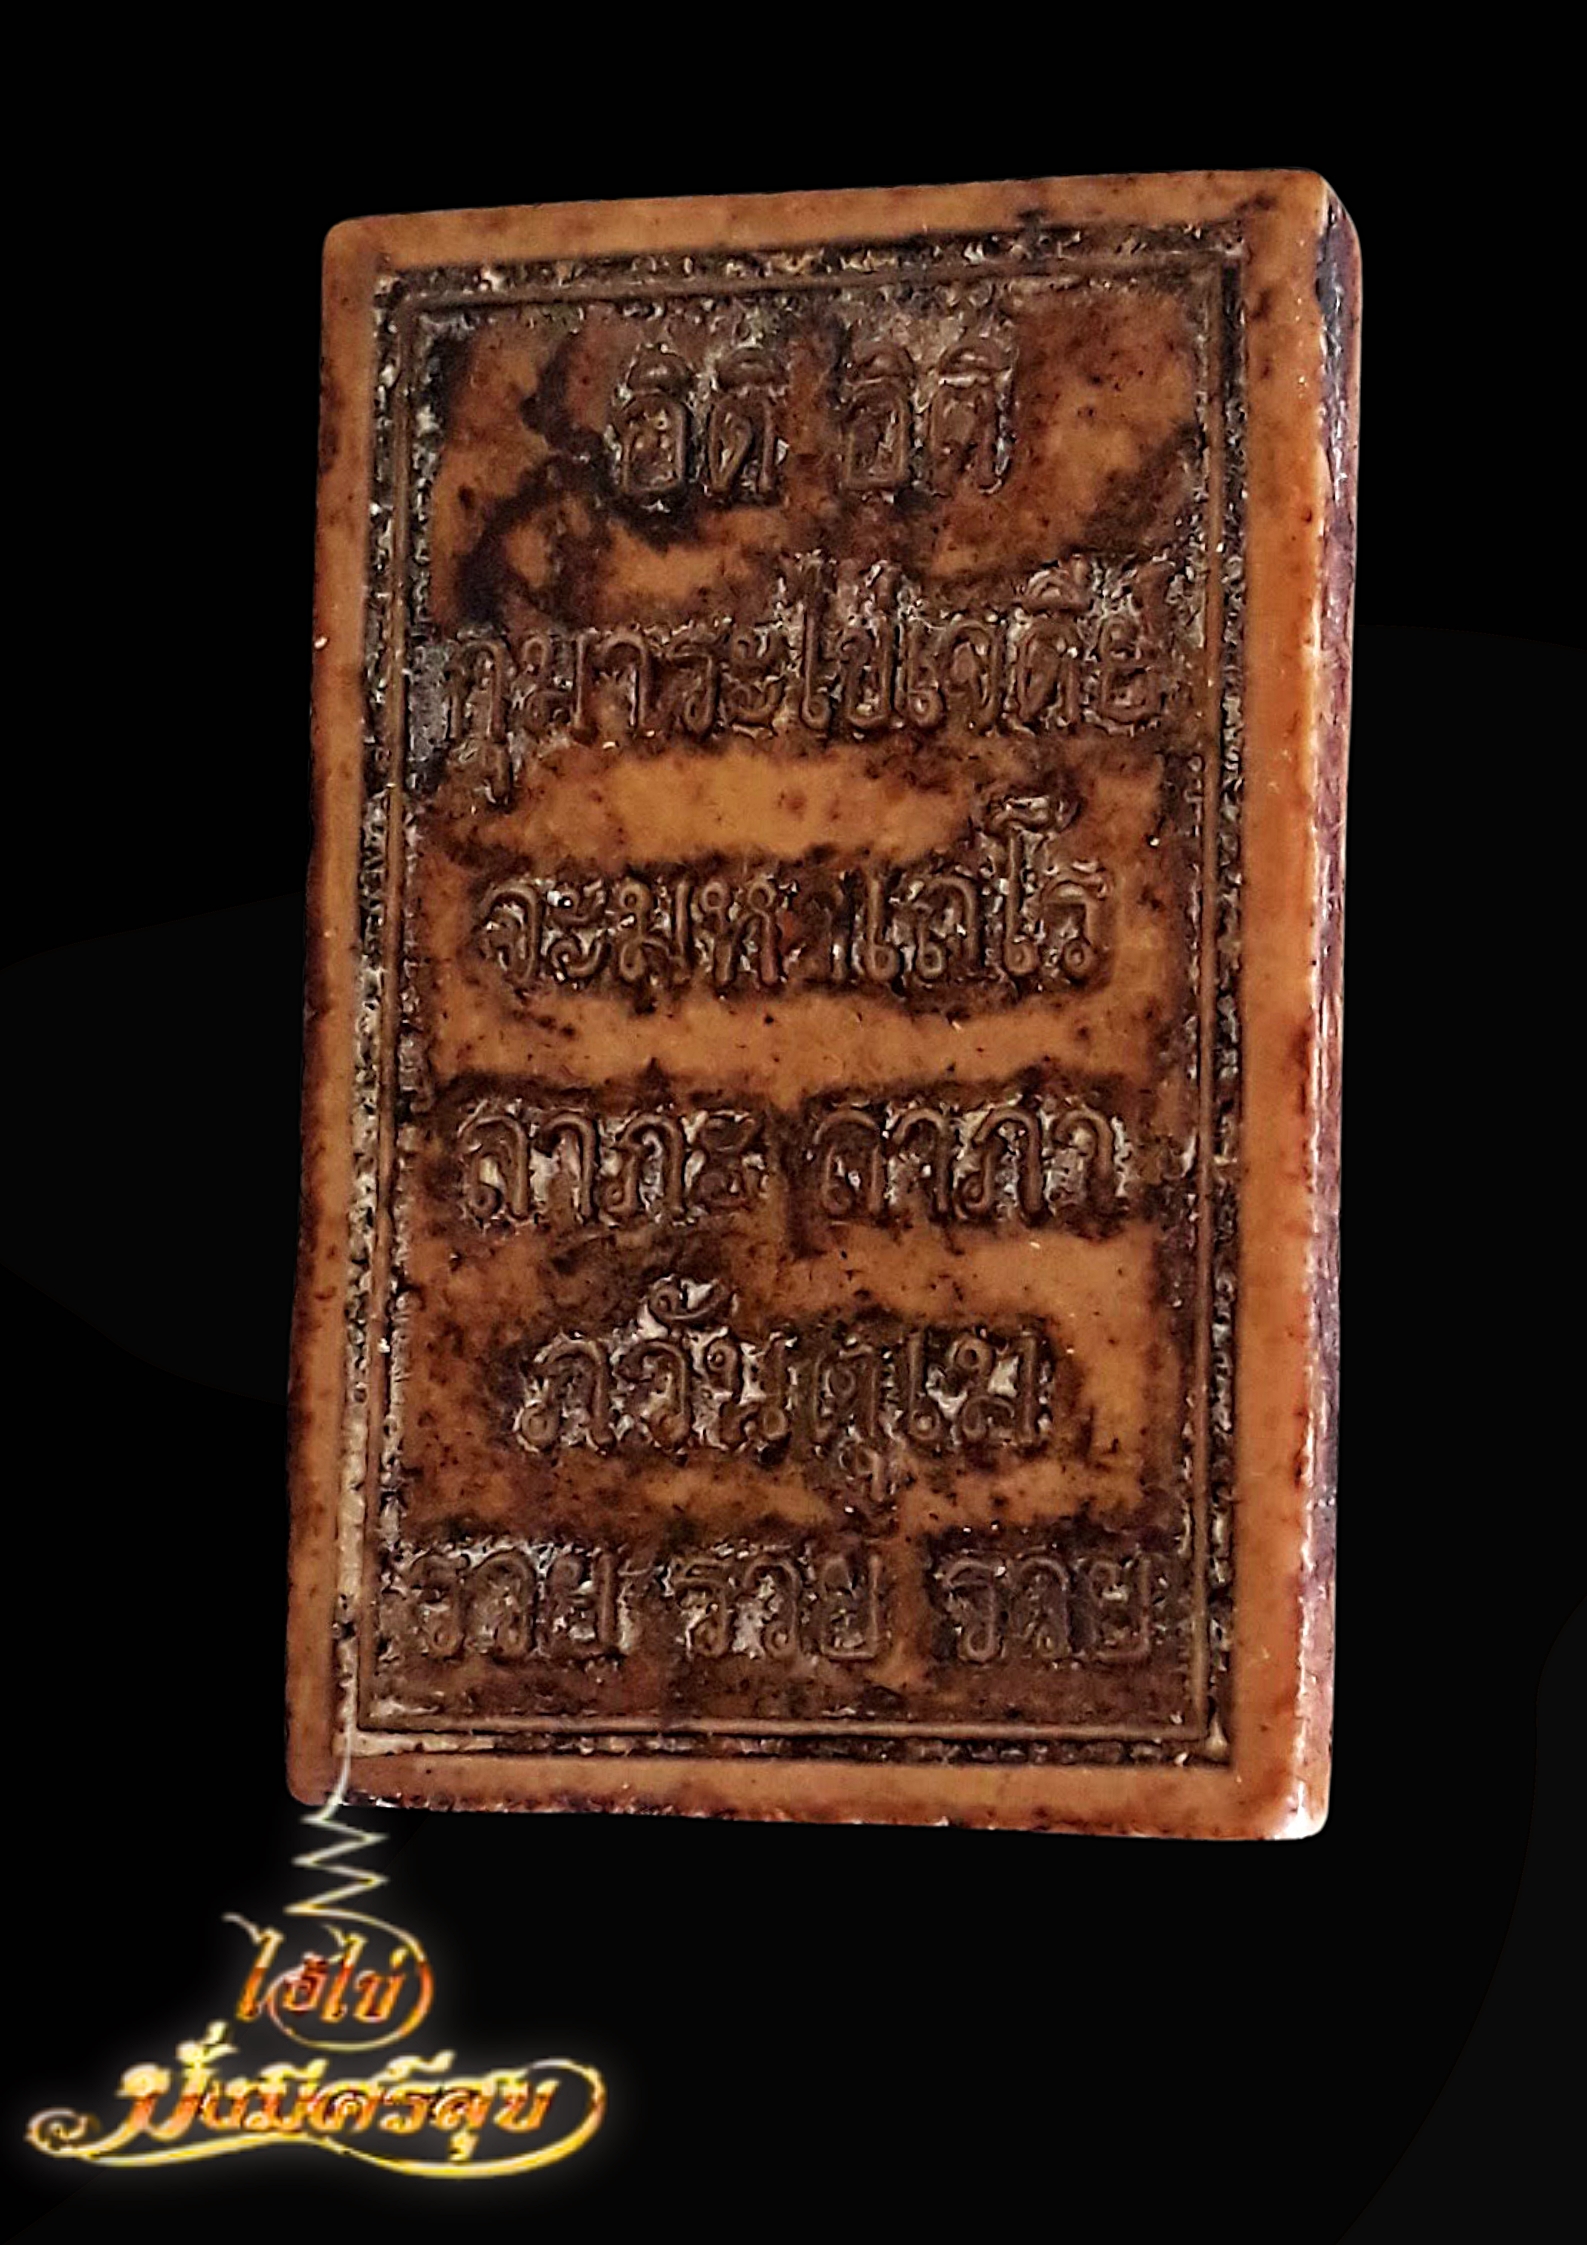 อิติ อิติ
กุมาระไข่เจดีย์
จะมหาเถโร
ลาภะ ลาภา
ภวันตุเม
รวย รวย รวย
ไอ้ไข่
มั่งมีศรีสุข